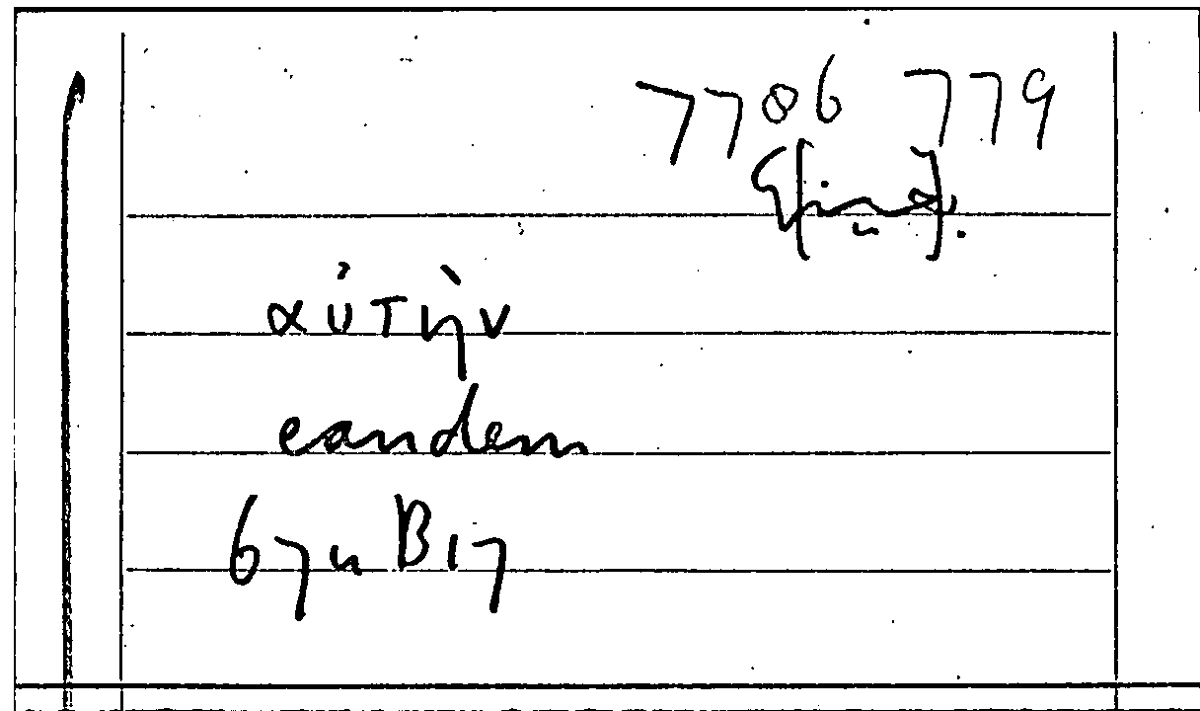 7706 779
αὐτὴν
eandem
67u B17